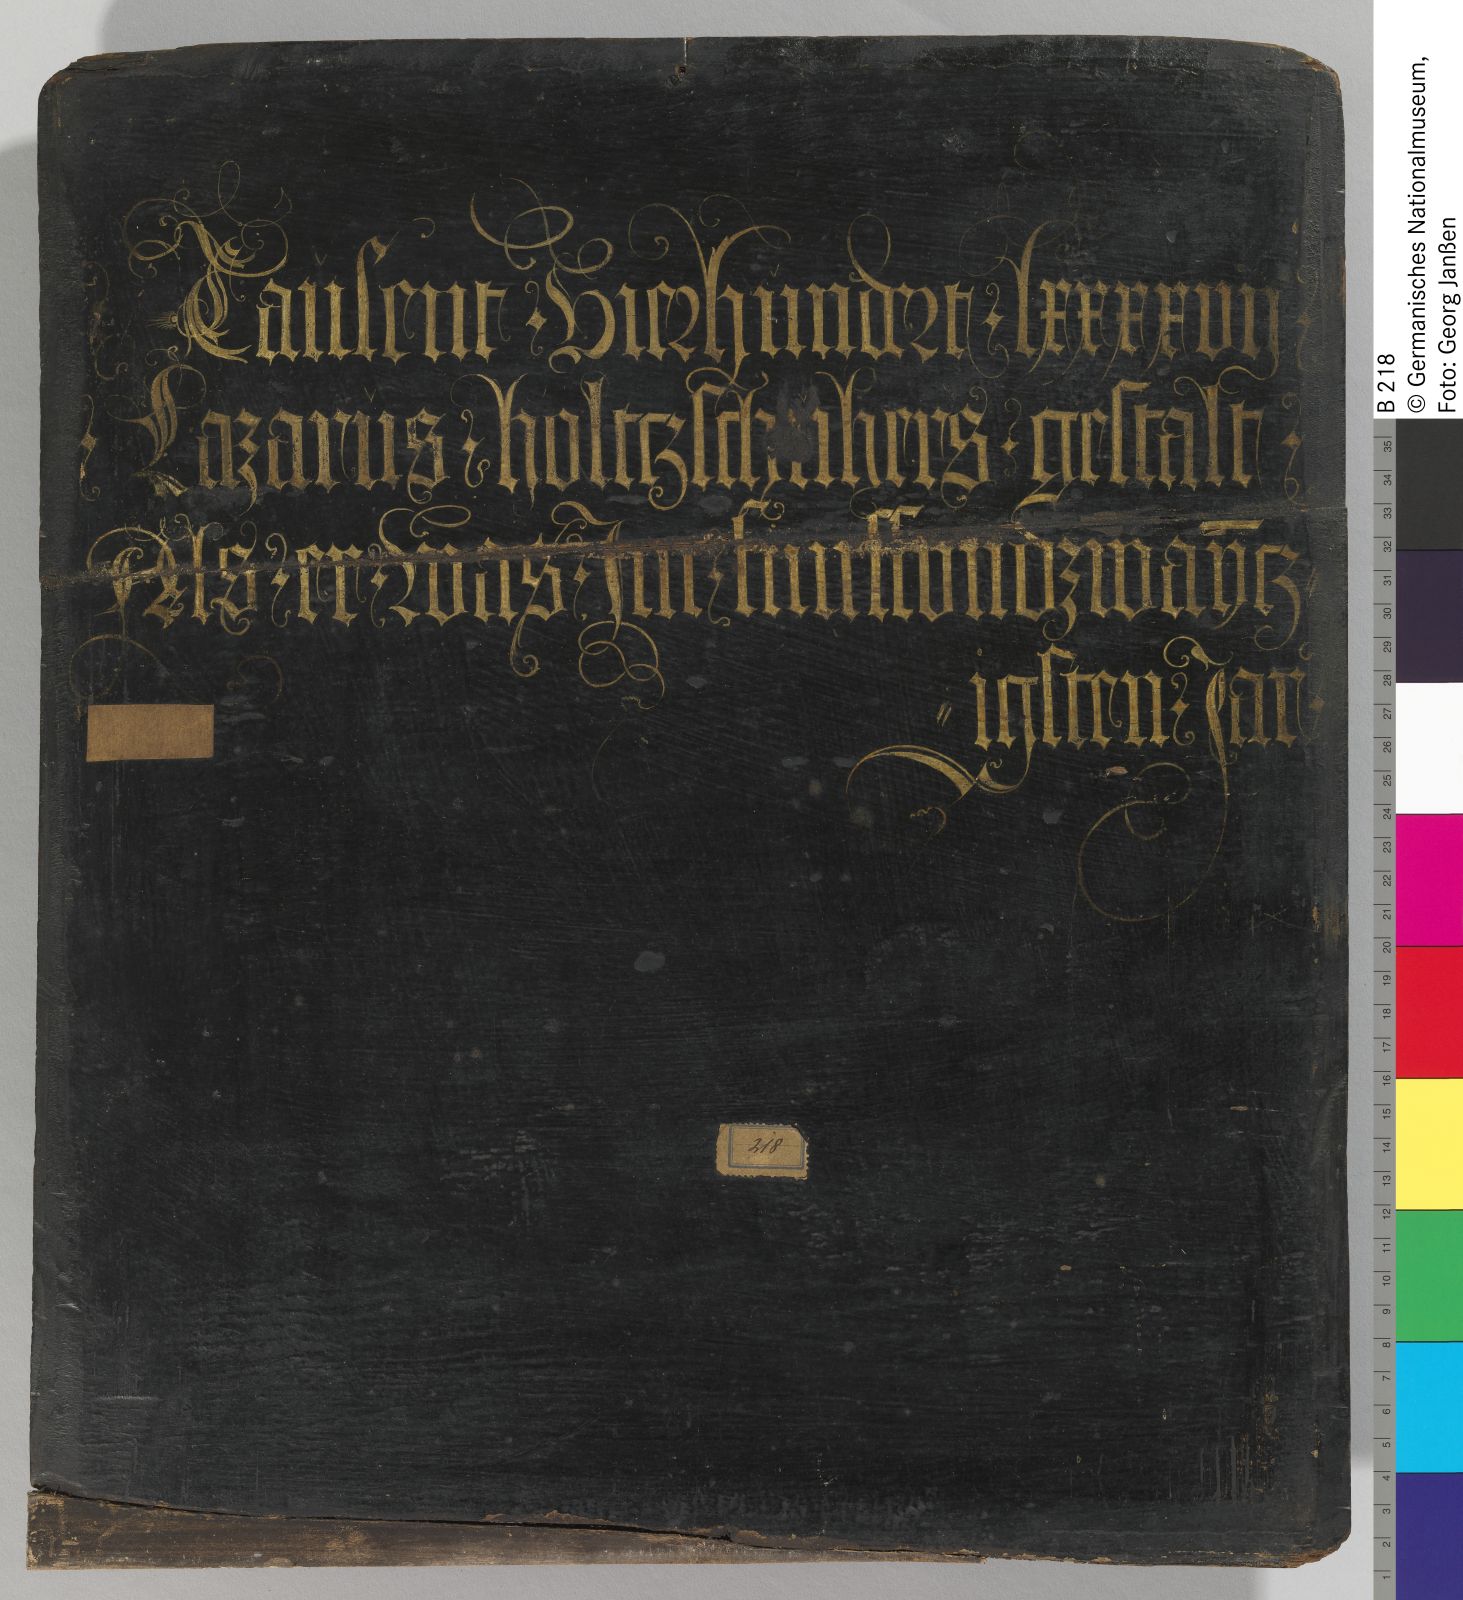 Taŭsent · Vierhŭndrt · lxxxxvij
· Lazarŭs · holtzschŭhers · gestalt ·
Als · er · was · Jm · funffvndzwaÿtz
igsten · Jar ·
218
B 218
© Germanisches Nationalmuseum,
Foto: Georg Janßen
35 34 33 32 31 30 29 28 27 26 25 24 23 22 21 20 19 18 17 16 15 14 13 12 11 10 9 8 7 6 5 4 3 2 1